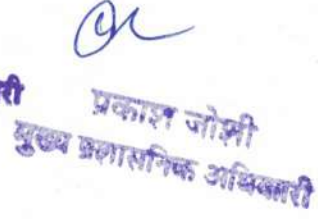 री
प्रकाश जोशी
मुख्य प्रशासनिक अधिकारी